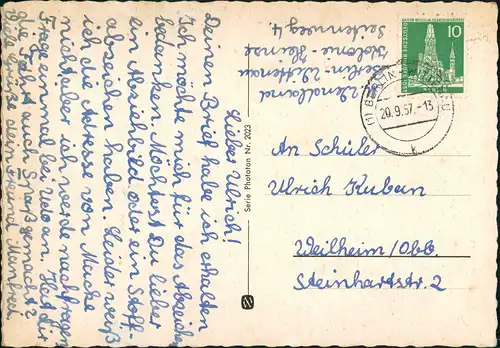 Lieber Ulrich!
Deinen Brief habe ich erhalten
Ich möchte mich für das Abzeichen
bedanken. Möchtest Du lieber
ein Abziehbild oder ein Stoff-
abzeichen haben. Leider weiß
ich die Adresse von Macke
nicht aber ich werde nachfragen
Frage einmal bei Udo an. Hat dir
die Fahrt auch Spaß gemacht?
Viele Grüße dein Freund Manfred
Serie Phototon Nr. 2023
Berlin-Wittenau
Kolonie-Heinse
Seitenweg 4.
10
(1) BERLIN
20.9.57.-13
k
An Schüler
Ulrich Kuban
Weilheim/Obb.
Steinhartstr. 2